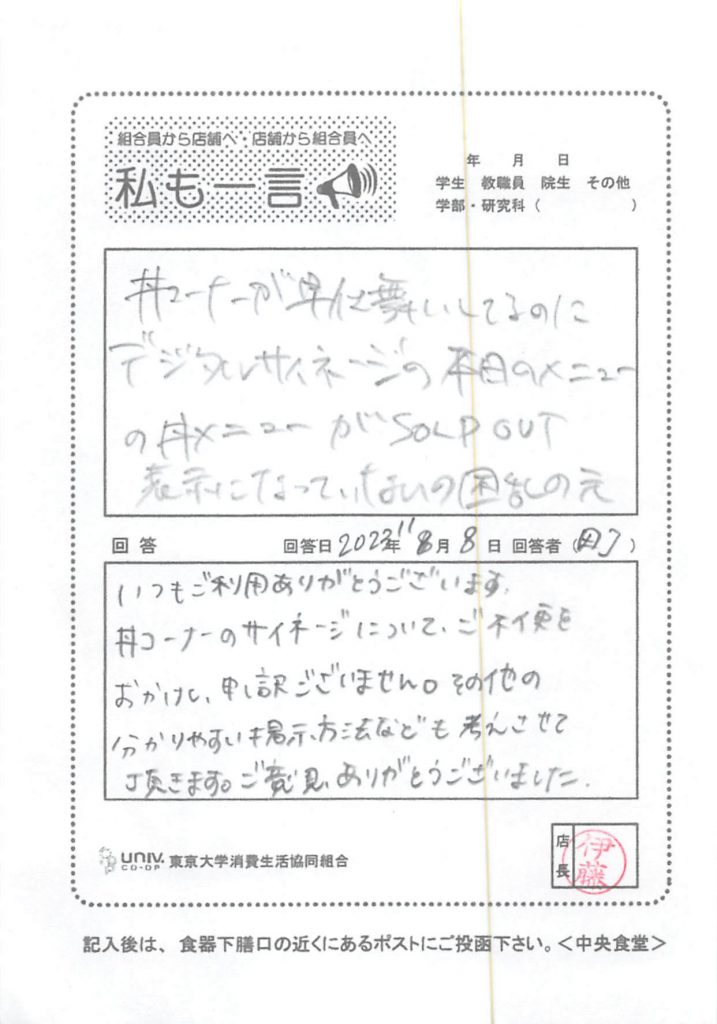 組合員から店舗へ・店舗から組合員へ
私も一言
年 月 日
学生 教職員 院生 その他
学部・研究科( )
丼コーナーが早仕舞いしてるのに
デジタルサイネージの本日のメニュー
の丼メニューがSOLD OUT
表示になっていないの困乱の元
回答 回答日 2023年 11月 8日 回答者( )
いつもご利用ありがとうございます。
丼コーナーのサイネージについて、ご不便を
おかけし、申し訳ございません。その他の
分かりやすい掲示方法なども考えさせて
頂きます。ご意見ありがとうございました。
UNIV. CO-OP 東京大学消費生活協同組合
店長 伊藤
記入後は、食器下膳口の近くにあるポストにご投函下さい。<中央食堂>